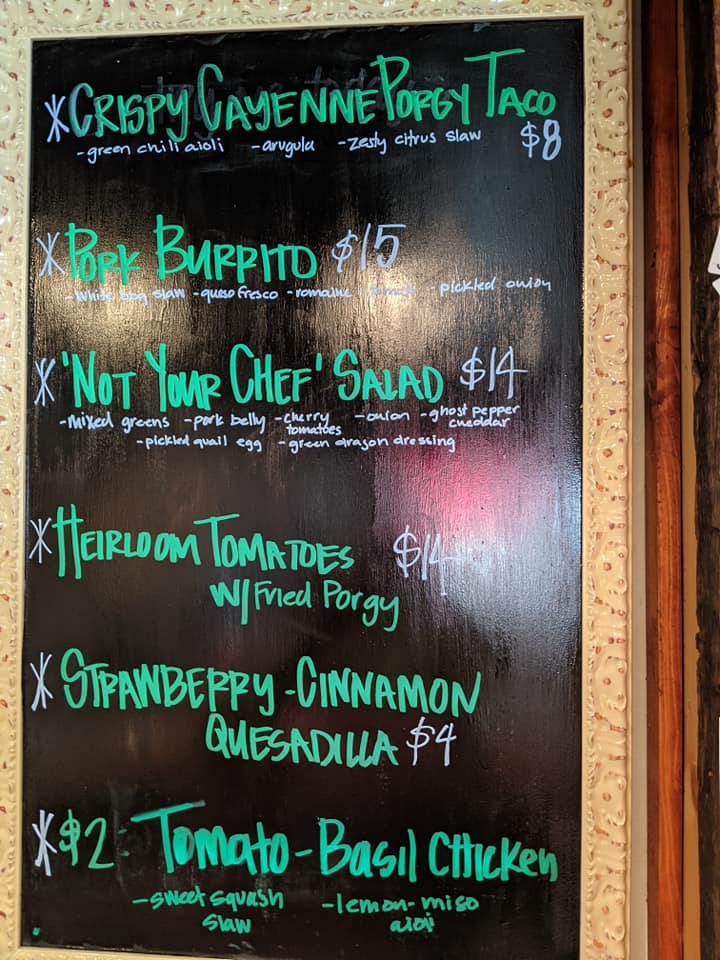 Crispy Cayenne Porgy Taco
-green chili aioli -arugula -zesty citrus slaw $8
Pork Burrito $15
-white bbq slaw -queso fresco -romaine -pickled onion
'Not Your Chef' Salad $14
-mixed greens -pork belly -cherry tomatoes -onion -ghost pepper cheddar
-pickled quail egg -green dragon dressing
Heirloom Tomatoes $14
w/ Fried Porgy
Strawberry-Cinnamon
Quesadilla $4
$2: Tomato-Basil Chicken
-sweet squash -lemon-miso
slaw aioi